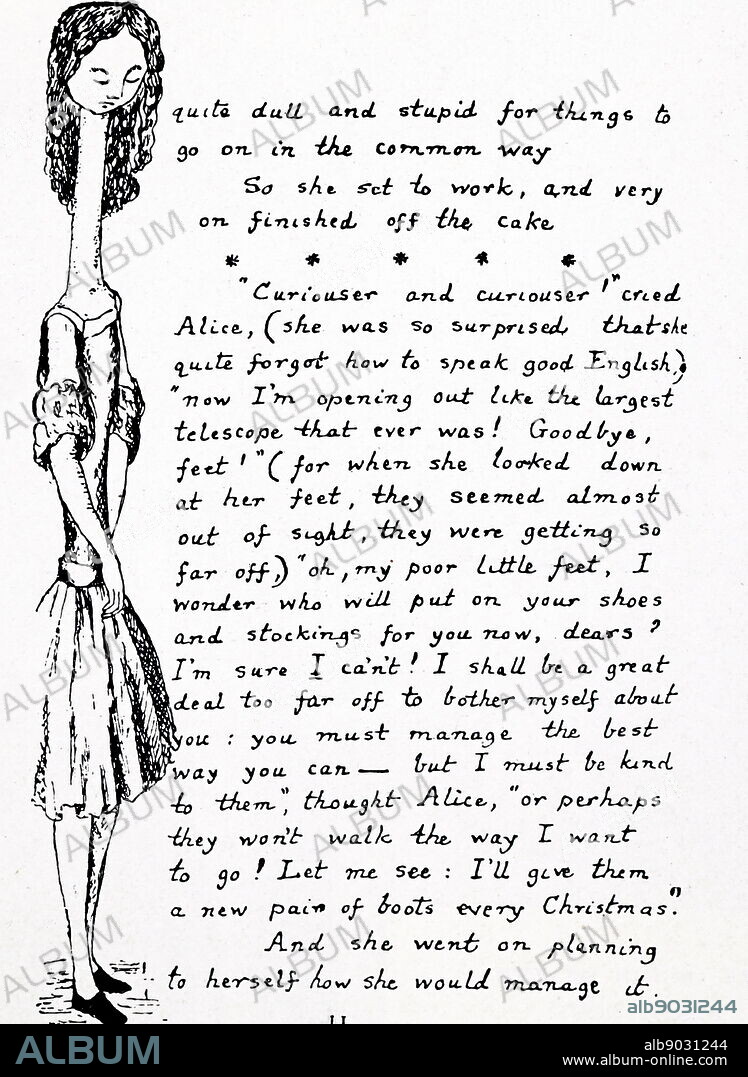 quite dull and stupid for things to
go on in the common way
So she set to work, and very
on finished off the cake
* * * * *
"Curiouser and curiouser!" cried
Alice, (she was so surprised that she
quite forgot how to speak good English,)
"now I'm opening out like the largest
telescope that ever was! Goodbye,
feet!" (for when she looked down
at her feet, they seemed almost
out of sight, they were getting so
far off,) "oh, my poor little feet, I
wonder who will put on your shoes
and stockings for you now, dears?
I'm sure I can't! I shall be a great
deal too far off to bother myself about
you: you must manage the best
way you can — but I must be kind
to them", thought Alice, "or perhaps
they won't walk the way I want
to go! Let me see: I'll give them
a new pair of boots every Christmas."
And she went on planning
to herself how she would manage it.
11
alb9031244
ALBUM
alb9031244
www.album-online.com